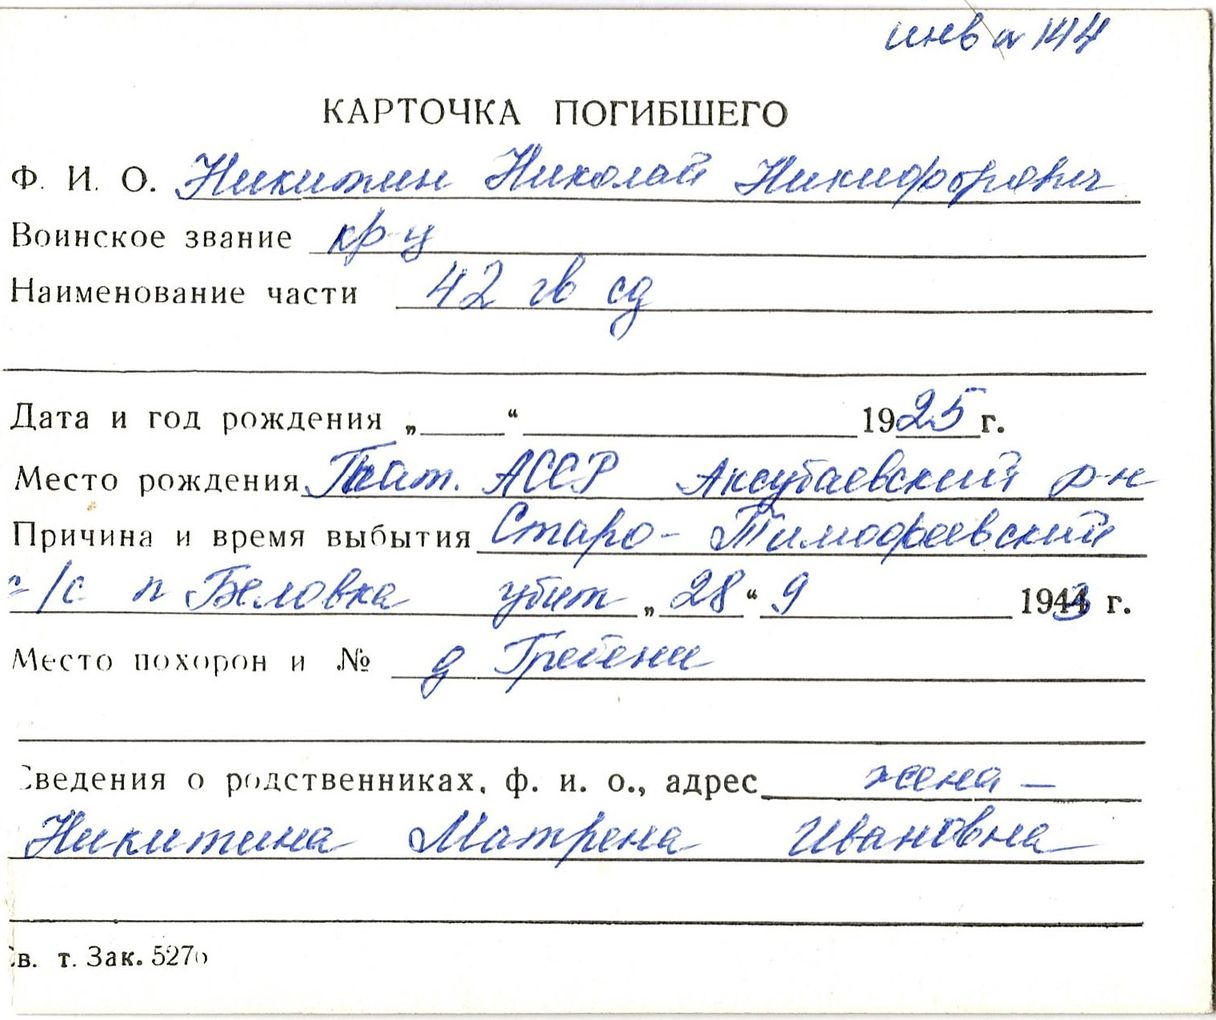 инв № 144
КАРТОЧКА ПОГИБШЕГО
Ф. И. О. Никитин Николай Никифорович
Воинское звание кр-ц
Наименование части 42 гв сд
Дата и год рождения „ “ 1925 г.
Место рождения Тат. АССР Аксубаевский р-н
Причина и время выбытия Старо-Тимофеевский
с/с п Беловка убит „28“ 9 1943 г.
Место похорон и № д Гребени
Сведения о родственниках, ф. и. о., адрес жена –
Никитина Матрена Ивановна
Св. т. Зак. 5276